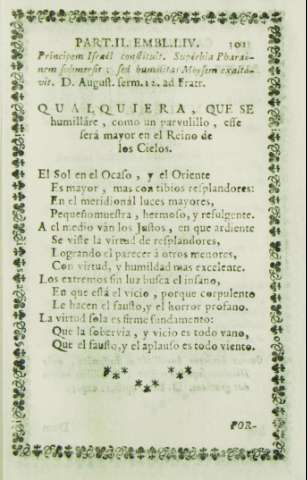 PART. II. EMBL. LIV. 101
Principem Israël constituit. Superbia Pharao-
nem submersit; sed humilitas Moysem exalta-
vit. D. August. serm. 12. ad Fratr.
QUALQUIERA, QUE SE
humilláre, como un parvulillo, esse
será mayor en el Reino de
los Cielos.
El Sol en el Ocaso, y el Oriente
Es mayor, mas con tibios resplandores:
En el meridionál luces mayores,
Pequeño muestra, hermoso, y refulgente.
A el medio ván los Justos, en que ardiente
Se viste la virtud de resplandores,
Logrando el parecer á otros menores,
Con virtud, y humildad mas excelente.
Los extremos sin luz busca el insano,
En que está el vicio, porque corpulento
Le hacen el fausto, y el horror profano.
La virtud sola es firme fundamento:
Que la sobervia, y vicio es todo vano,
Que el fausto, y el aplauso es todo viento.
POR-